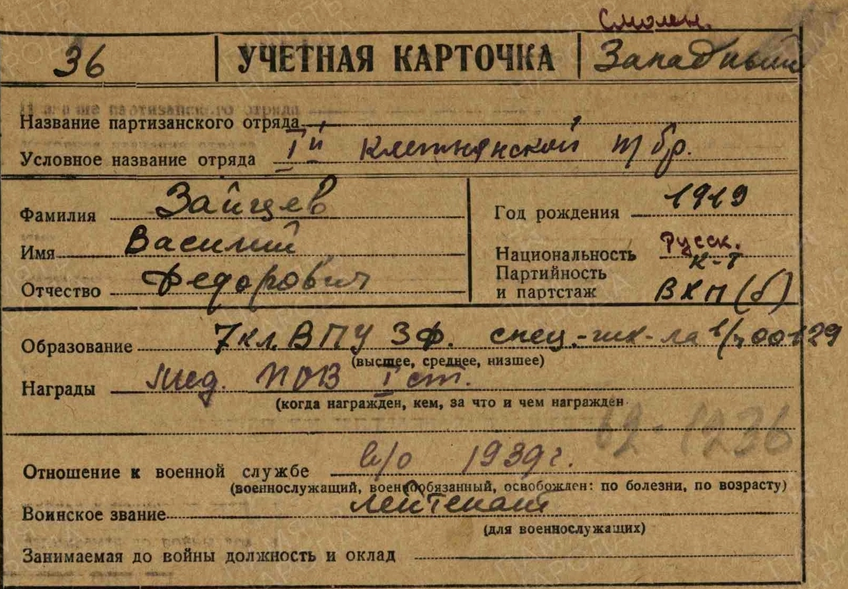 Смолен.
36 УЧЕТНАЯ КАРТОЧКА Западный
Название партизанского отряда
Условное название отряда Iй Клетнянской п/бр.
Фамилия Зайцев
Имя Василий
Отчество Федорович
Год рождения 1919
Национальность Русск.
Партийность к-т
и партстаж ВКП(б)
Образование 7 кл. ВПУ ЗФ. спец.-шк-ла в/ч 00129
(высшее, среднее, низшее)
Награды мед. ПОВ I ст.
(когда награжден, кем, за что и чем награжден
62-1236
Отношение к военной службе в/о 1939 г.
(военнослужащий, военнообязанный, освобожден: по болезни, по возрасту)
Воинское звание лейтенант
(для военнослужащих)
Занимаемая до войны должность и оклад